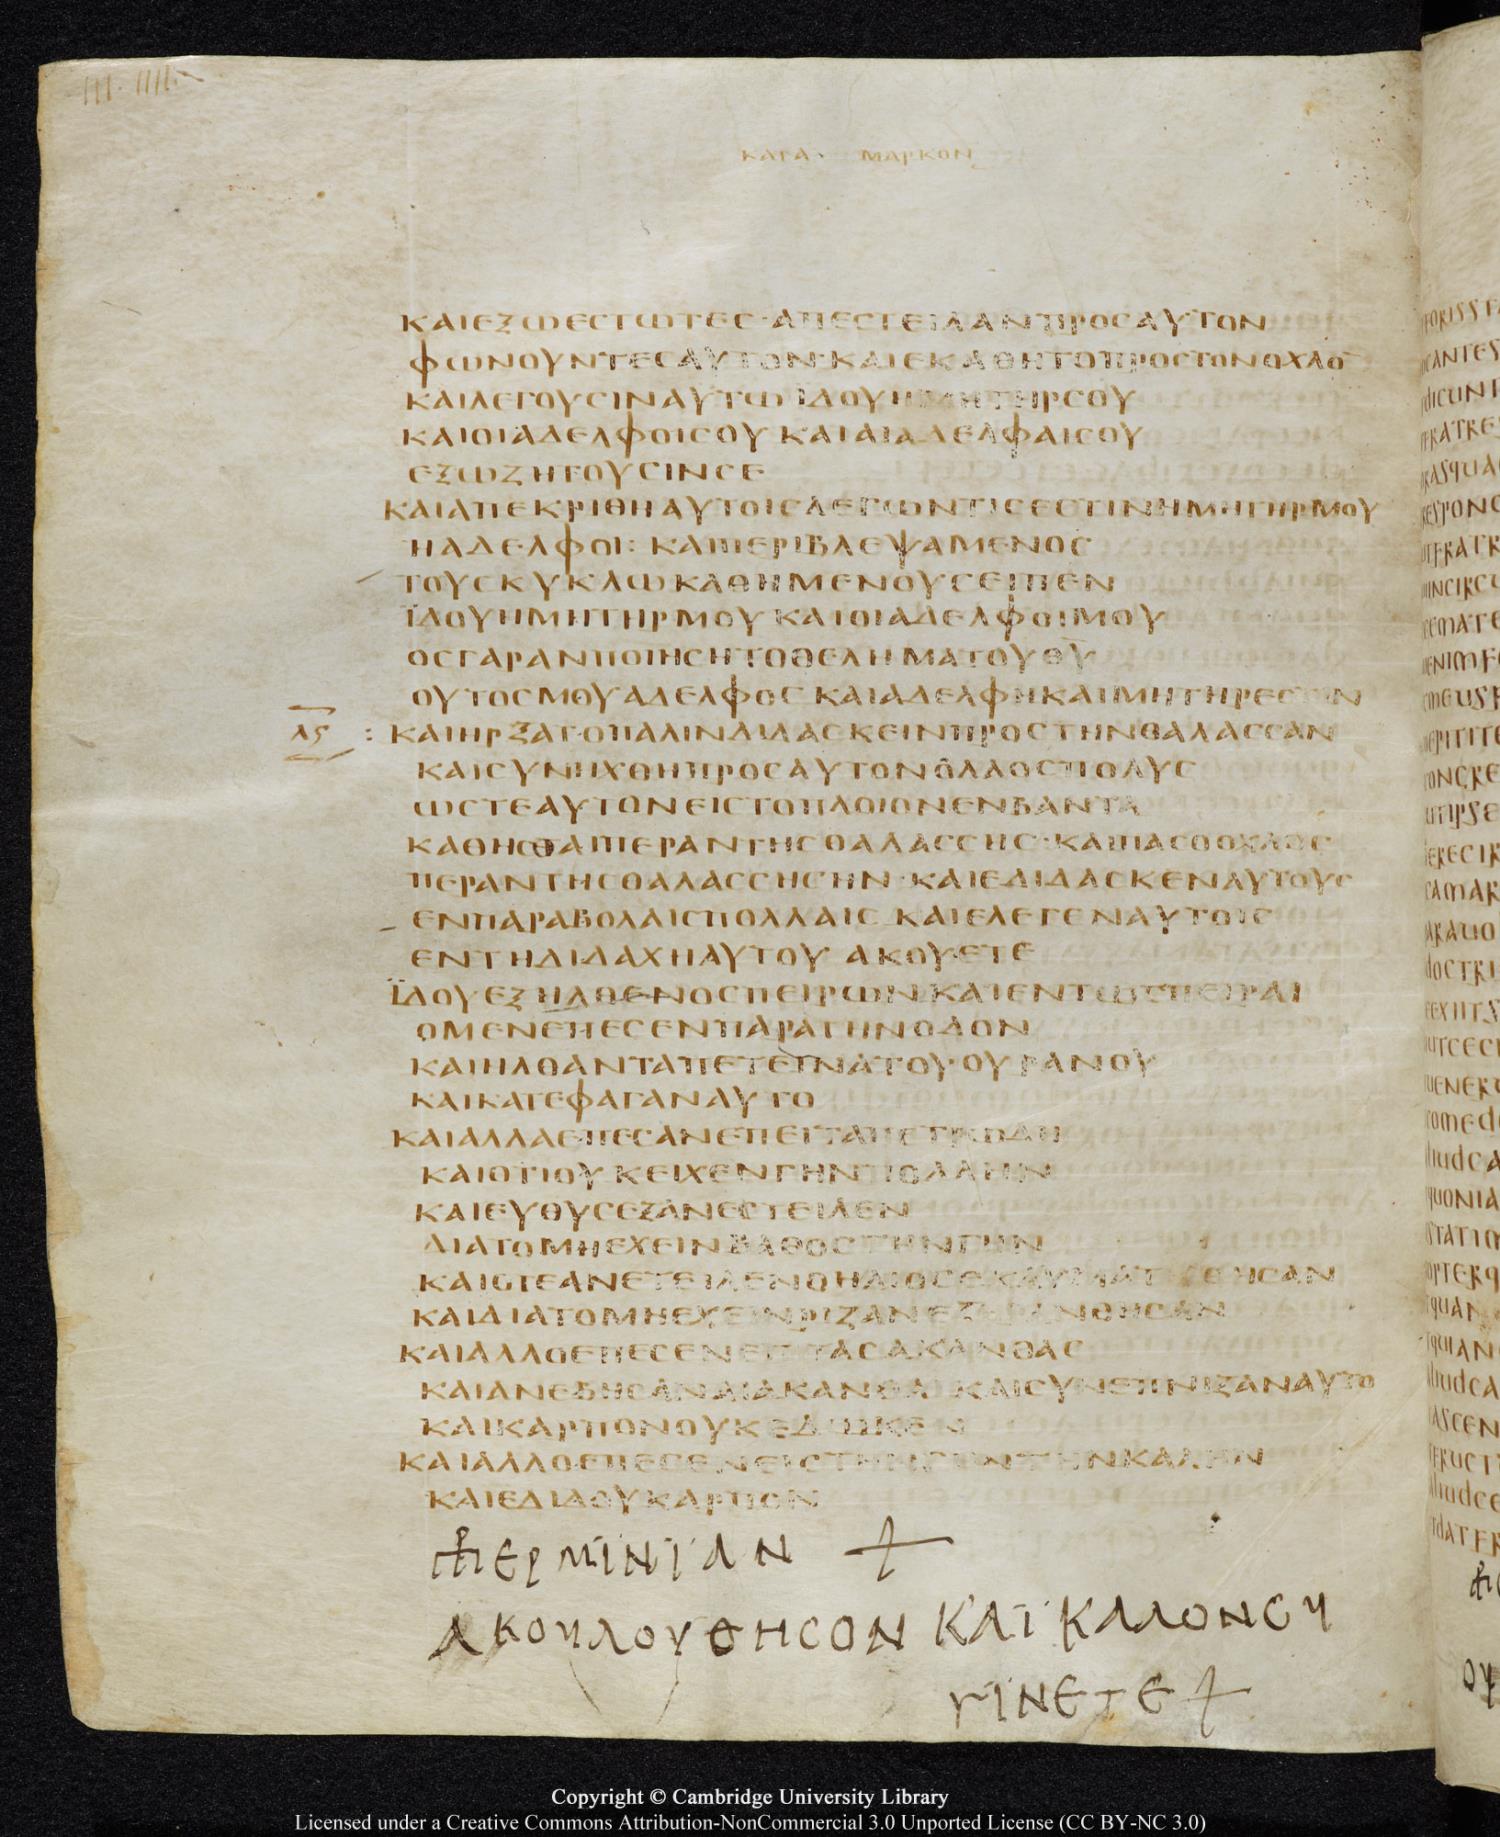 ΚΑΤΑ · ΜΑΡΚΟΝ
ΚΑΙΕΞΩΕСΤΩΤΕС·ΑΠΕСΤΕΙΛΑΝΠΡΟСΑΥΤΟΝ
ΦΩΝΟΥΝΤΕСΑΥΤΟΝ·ΚΑΙΕΚΑΘΗΤΟΠΡΟСΤΟΝΟΧΛΟ
ΚΑΙΛΕΓΟΥСΙΝΑΥΤΩ ΪΔΟΥΗΜΗΤΗΡСΟΥ
ΚΑΙΟΙΑΔΕΛΦΟΙСΟΥ ΚΑΙΑΙΑΔΕΛΦΑΙСΟΥ
ΕΞΩΖΗΤΟΥСΙΝСΕ
ΚΑΙΑΠΕΚΡΙΘΗΑΥΤΟΙСΛΕΓΩΝΤΙСΕСΤΙΝΗΜΗΤΗΡΜΟΥ
ΗΑΔΕΛΦΟΙ: ΚΑΙΠΕΡΙΒΛΕΨΑΜΕΝΟС
ΤΟΥСΚΥΚΛΩΚΑΘΗΜΕΝΟΥСΕΙΠΕΝ
ΪΔΟΥΗΜΗΤΗΡΜΟΥ ΚΑΙΟΙΑΔΕΛΦΟΙΜΟΥ
ΟСΓΑΡΑΝΠΟΙΗСΗΤΟΘΕΛΗΜΑΤΟΥΘΥ
ΟΥΤΟСΜΟΥΑΔΕΛΦΟС ΚΑΙΑΔΕΛΦΗΚΑΙΜΗΤΗΡΕСΤΙΝ
ΛϚ : ΚΑΙΗΡΞΑΤΟΠΑΛΙΝΔΙΔΑСΚΕΙΝΠΡΟСΤΗΝΘΑΛΑССΑΝ
ΚΑΙСΥΝΗΧΘΗΠΡΟСΑΥΤΟΝΟΛΑΟСΠΟΛΥС
ΩСΤΕΑΥΤΟΝΕΙСΤΟΠΛΟΙΟΝΕΝΒΑΝΤΑ
ΚΑΘΗСΘΑΙΠΕΡΑΝΤΗСΘΑΛΑССΗС·ΚΑΙΠΑСΟΟΧΛΟС
ΠΕΡΑΝΤΗСΘΑΛΑССΗСΗΝ·ΚΑΙΕΔΙΔΑСΚΕΝΑΥΤΟΥС
ΕΝΠΑΡΑΒΟΛΑΙСΠΟΛΛΑΙС ΚΑΙΕΛΕΓΕΝΑΥΤΟΙС
ΕΝΤΗΔΙΔΑΧΗΑΥΤΟΥ ΑΚΟΥΕΤΕ
ΪΔΟΥΕΞΗΛΘΕΝΟСΠΕΙΡΩΝ·ΚΑΙΕΝΤΩСΠΕΙΡΑΙ
ΟΜΕΝΕΠΕСΕΝΠΑΡΑΤΗΝΟΔΟΝ
ΚΑΙΗΛΘΑΝΤΑΠΕΤΕΙΝΑΤΟΥΟΥΡΑΝΟΥ
ΚΑΙΚΑΤΕΦΑΓΑΝΑΥΤΟ
ΚΑΙΑΛΛΑΕΠΕСΑΝΕΠΕΙΤΑΠΕΤΡΩΔΗ
ΚΑΙΟΤΙΟΥΚΕΙΧΕΝΓΗΝΠΟΛΛΗΝ
ΚΑΙΕΥΘΥСΕΞΑΝΕСΤΕΙΛΕΝ
ΔΙΑΤΟΜΗΕΧΕΙΝΒΑΘΟСΤΗΝΓΗΝ
ΚΑΙΟΤΕΑΝΕΤΕΙΛΕΝΟΗΛΙΟСΕΚΑΥΜΑΤΙСΘΗСΑΝ
ΚΑΙΔΙΑΤΟΜΗΕΧΕΙΝΡΙΖΑΝΕΞΗΡΑΝΘΗСΑΝ
ΚΑΙΑΛΛΟΕΠΕСΕΝΕΠΙΤΑСΑΚΑΝΘΑС
ΚΑΙΑΝΕΒΗСΑΝΑΙΑΚΑΝΘΑΙ ΚΑΙСΥΝΕΠΝΙΞΑΝΑΥΤΟ
ΚΑΙΚΑΡΠΟΝΟΥΚΕΔΩΚΕΝ
ΚΑΙΑΛΛΟΕΠΕСΕΝΕΙСΤΗΝΓΗΝΤΗΝΚΑΛΗΝ
ΚΑΙΕΔΙΔΟΥΚΑΡΠΟΝ
ΕΡΜΙΝΙΑΝ +
ΑΚΟΥΛΟΥΘΗСΟΝ ΚΑΙ ΚΑΛΟΝСΥ
ΓΙΝΕΤΕ +
Copyright © Cambridge University Library
Licensed under a Creative Commons Attribution-NonCommercial 3.0 Unported License (CC BY-NC 3.0)